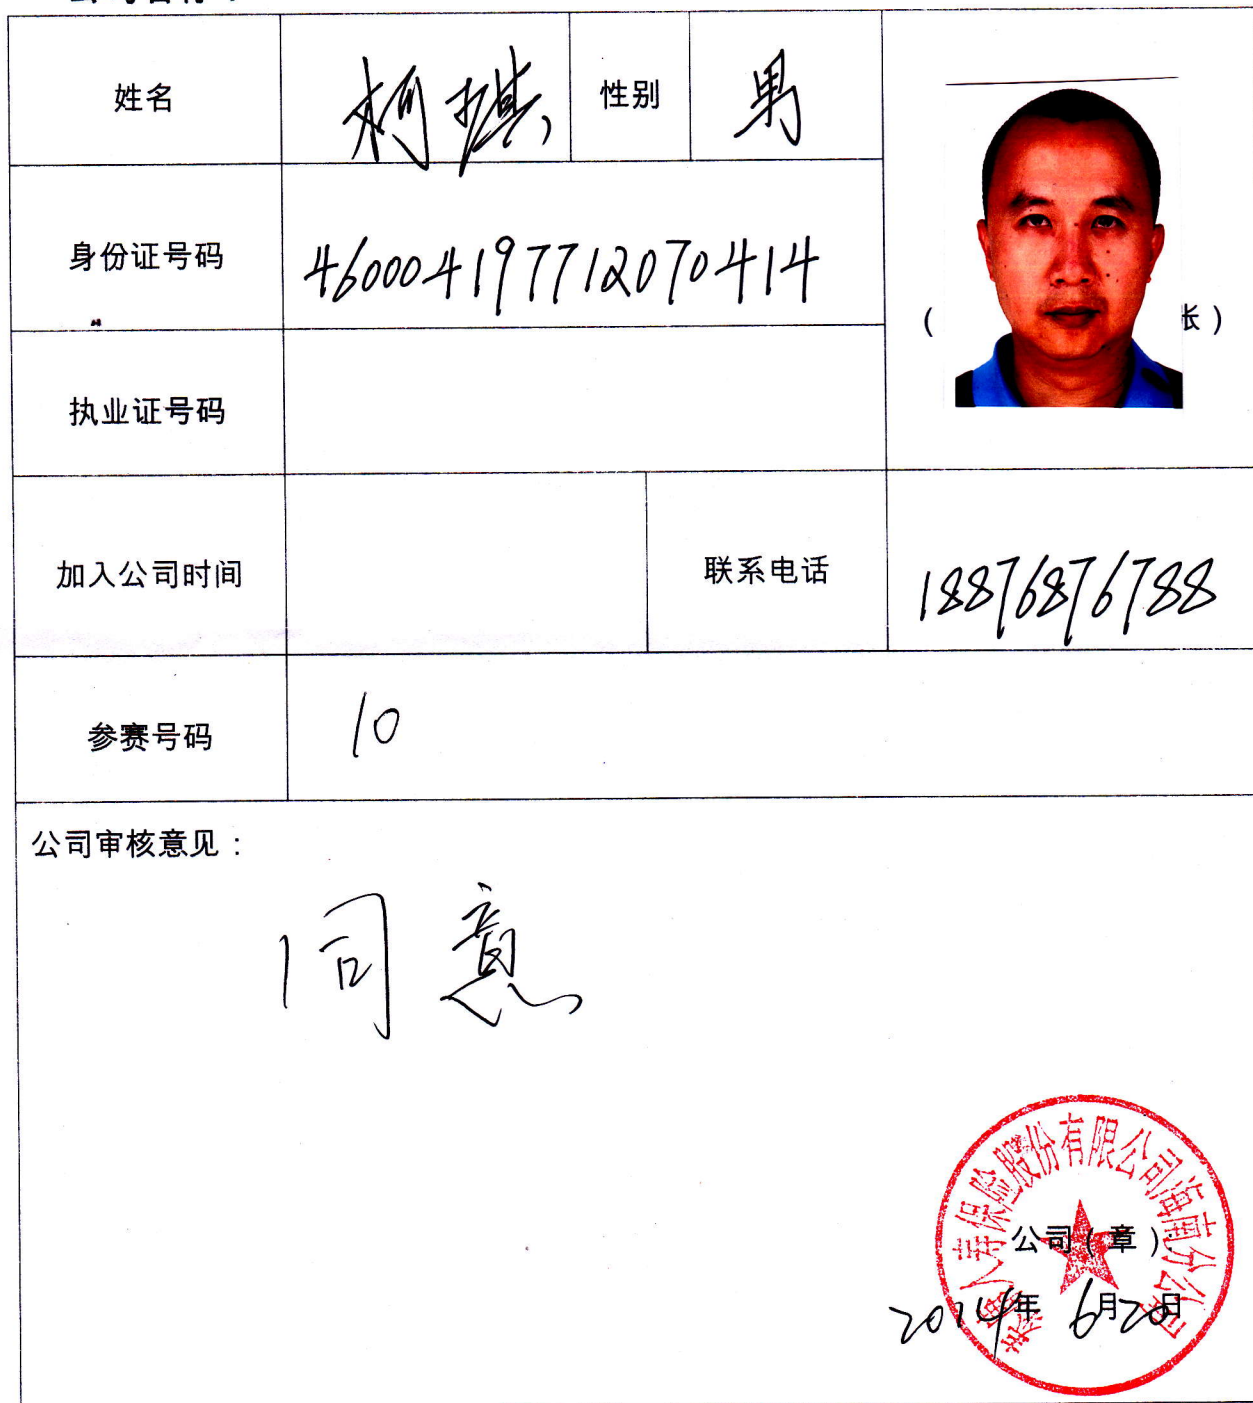 姓名 柯琪 性别 男
身份证号码 460004197712070414
(张)
执业证号码
加入公司时间 联系电话 18876876788
参赛号码 10
公司审核意见：
同意
泰康人寿保险股份有限公司海南分公司
公司（章）：
2014年 6月20日